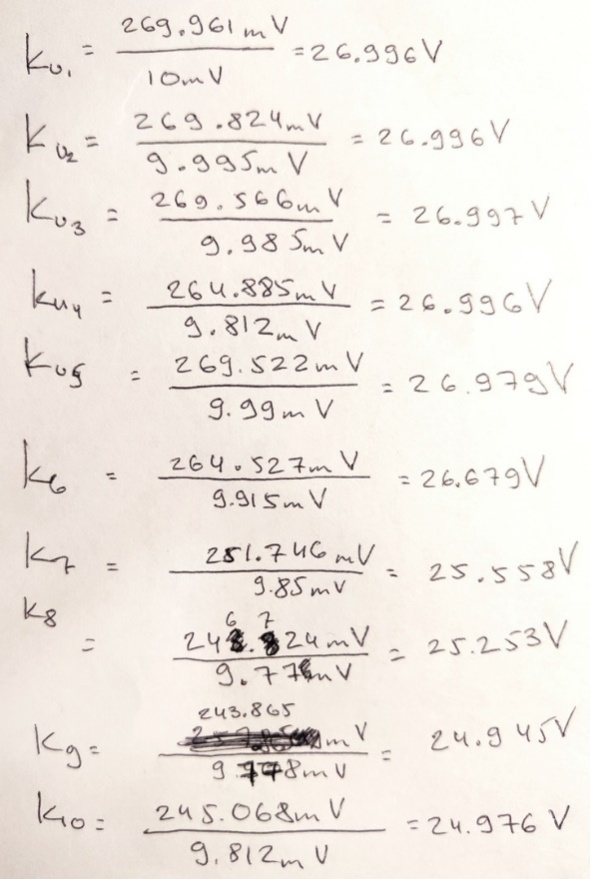 Ku1 = 269.961mV / 10mV = 26.996V
Ku2 = 269.824mV / 9.995mV = 26.996V
Ku3 = 269.566mV / 9.985mV = 26.997V
Ku4 = 264.885mV / 9.812mV = 26.996V
Ku5 = 269.522mV / 9.99mV = 26.979V
K6 = 264.527mV / 9.915mV = 26.679V
K7 = 251.746mV / 9.85mV = 25.558V
K8 = 246.724mV / 9.77mV = 25.253V
K9 = 243.865mV / 9.778mV = 24.945V
K10 = 245.068mV / 9.812mV = 24.976V